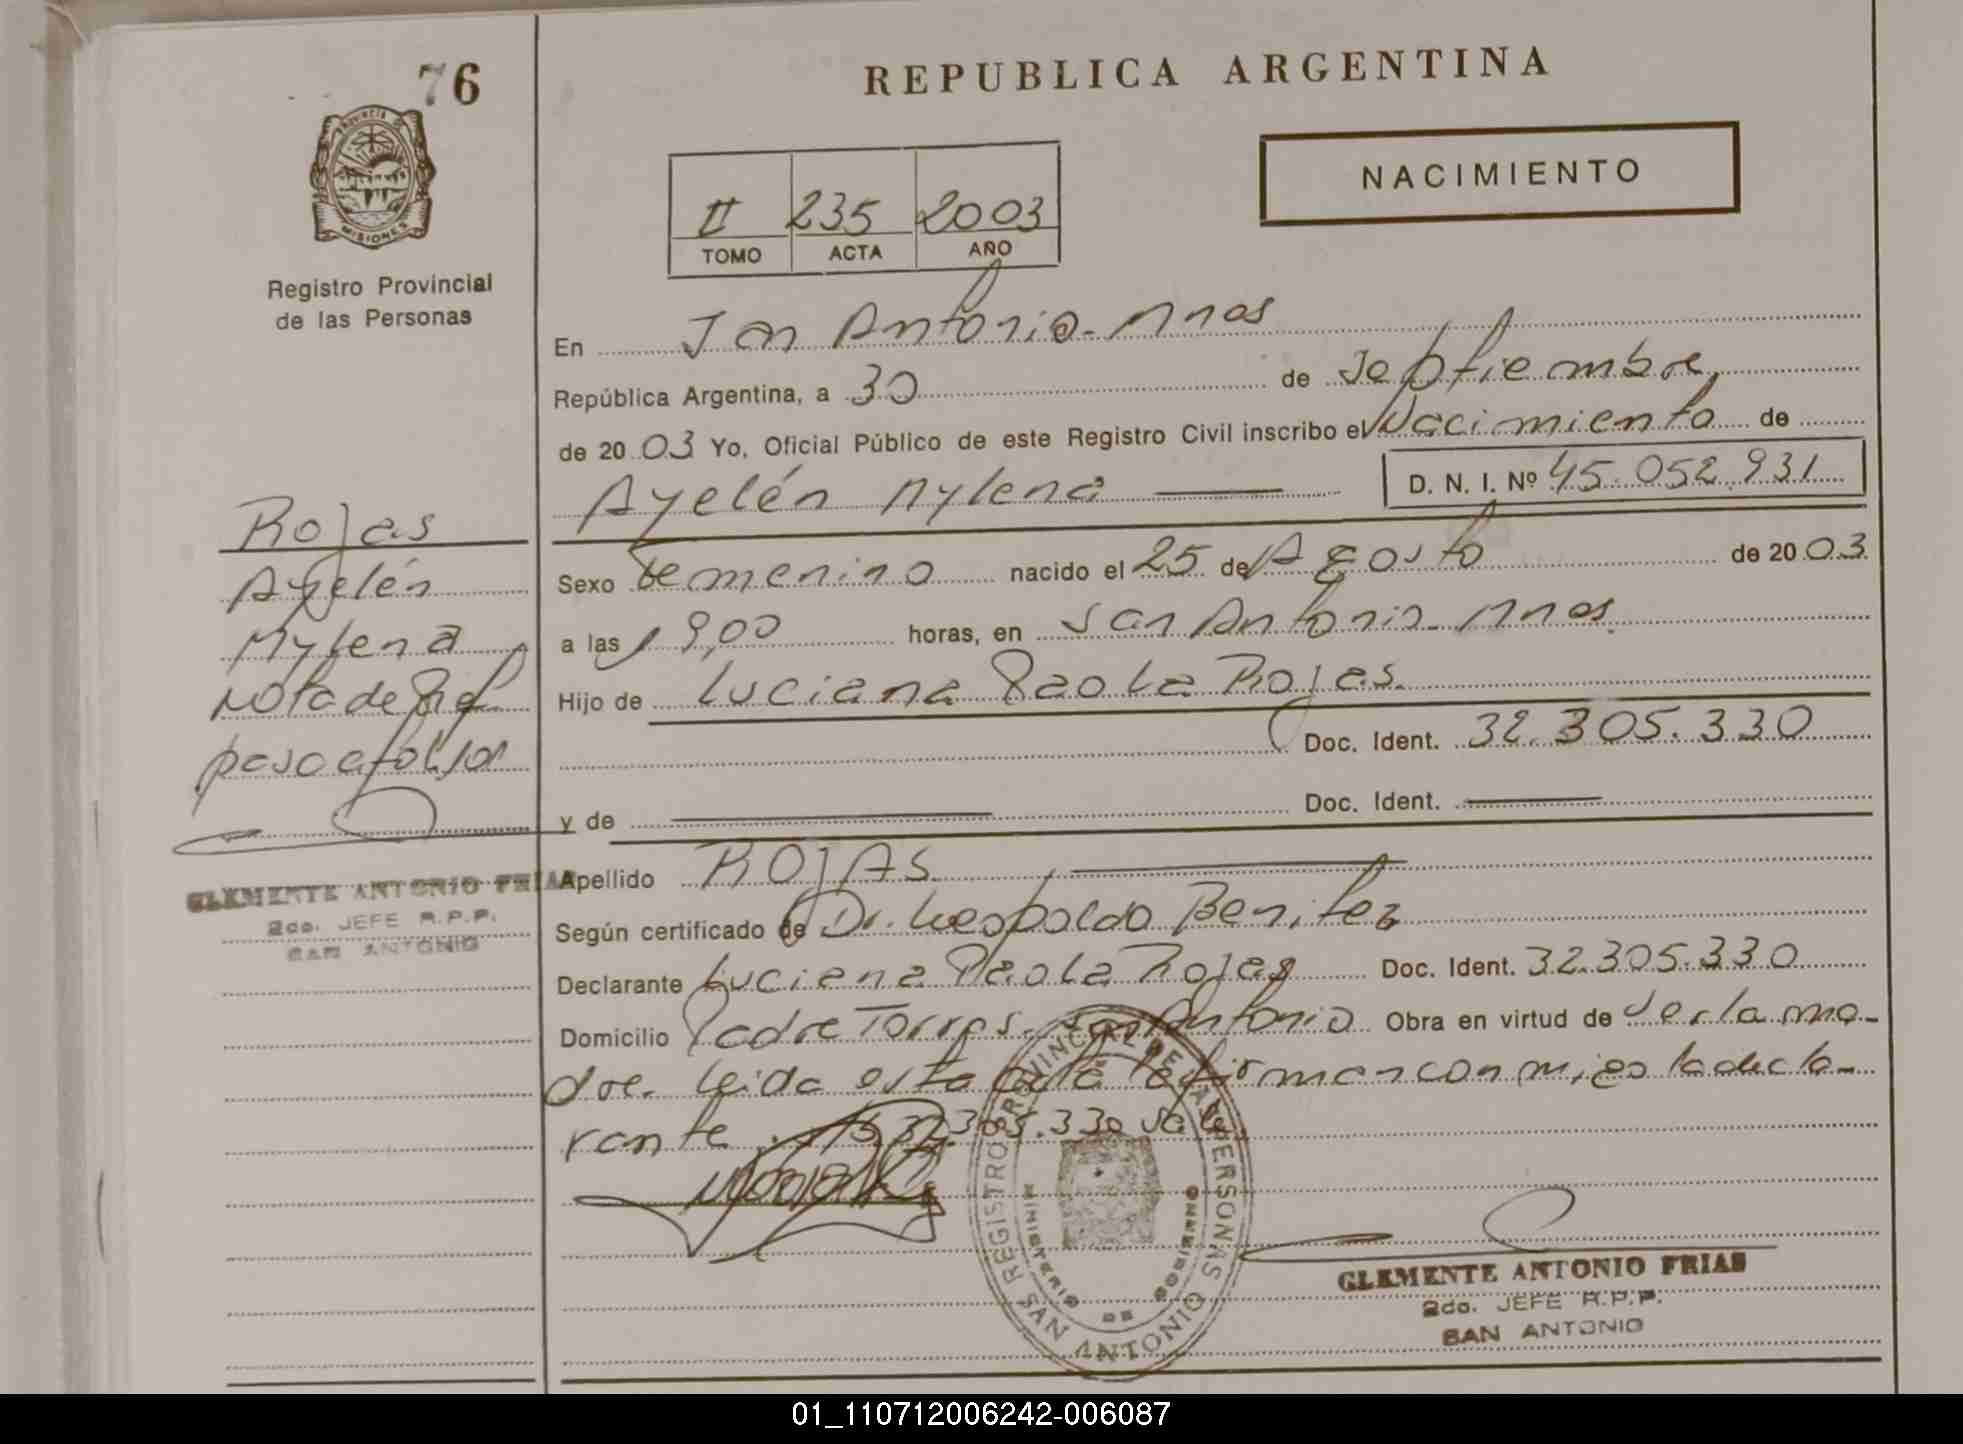 76
PROVINCIA DE
MISIONES
Registro Provincial
de las Personas
REPUBLICA ARGENTINA
NACIMIENTO
II 235 2003
TOMO ACTA AÑO
En San Antonio - Mnes
República Argentina, a 30 de Septiembre
de 2003 Yo, Oficial Público de este Registro Civil inscribo el Nacimiento de
Ayelén Mylena D. N. I. Nº 45.052.931
Sexo femenino nacido el 25 de Agosto de 2003
a las 19,00 horas, en San Antonio - Mnes.
Hijo de Luciana Paola Rojas.
Doc. Ident. 32.305.330
y de Doc. Ident.
Apellido ROJAS
Según certificado de Dr. Leopoldo Benitez
Declarante Luciana Paola Rojas Doc. Ident. 32.305.330
Domicilio Padre Torres. San Antonio Obra en virtud de ser la ma-
dre. leida esta acta la firman conmigo la decla-
rante. 32.305.330 Vale.
Rojas
Ayelén
Mylena
Nota de Ref
paso a fol 101
CLEMENTE ANTONIO FRIAS
2do. JEFE R.P.P.
SAN ANTONIO
REGISTRO PROVINCIAL DE LAS PERSONAS
SAN ANTONIO
MINISTERIO DE GOBIERNO
CLEMENTE ANTONIO FRIAS
2do. JEFE R.P.P.
SAN ANTONIO
01_110712006242-006087